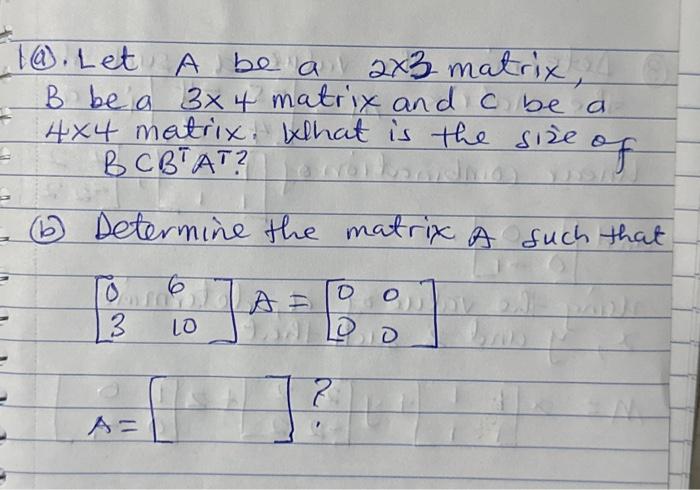 1(a). Let A be a 2x3 matrix,
B be a 3x4 matrix and C be a
4x4 matrix. What is the size of
BCBᵀAᵀ?
(b) Determine the matrix A such that
[0 6
3 10] A = [0 0
0 0]
A = [ ] ?